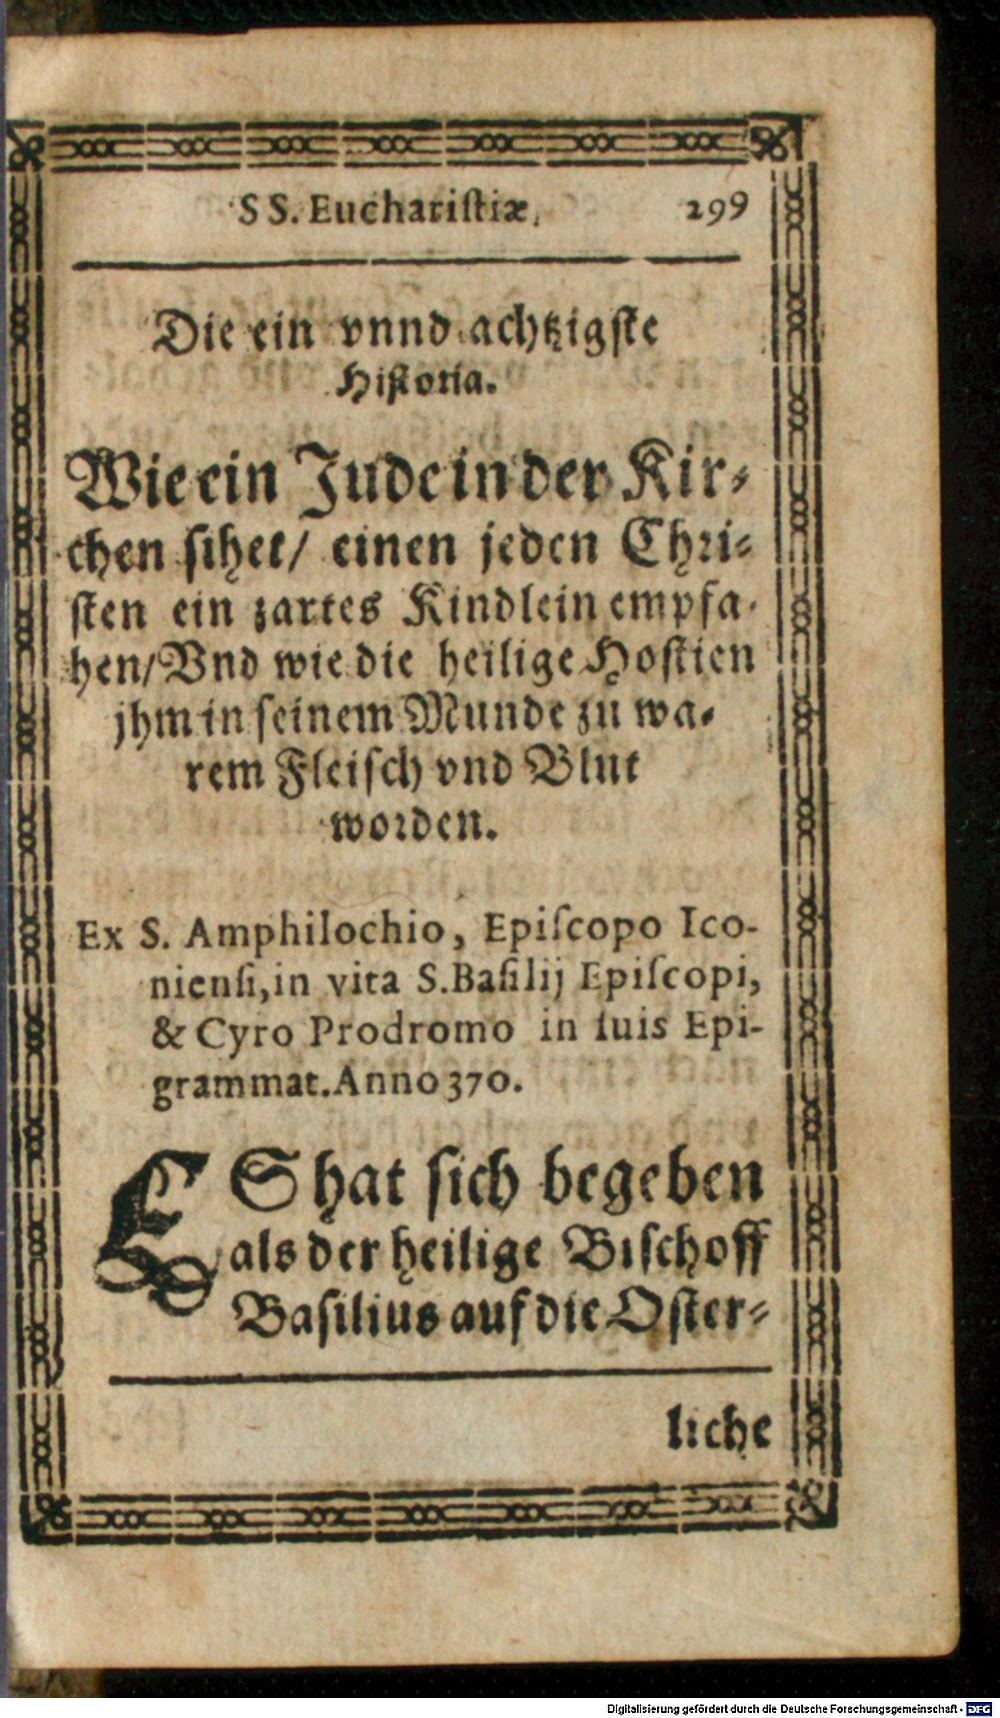 SS. Euchariſtiæ. 299
Die ein vnnd achtzigſte
Hiſtoria.
Wie ein Jude in der Kir⸗
chen ſihet/ einen jeden Chri⸗
ſten ein zartes Kindlein empfa⸗
hen/ Vnd wie die heilige Hoſtien
jhm in ſeinem Munde zu wa⸗
rem Fleiſch vnd Blut
worden.
Ex S. Amphilochio, Epiſcopo Ico-
nienſi, in vita S. Baſilij Epiſcopi,
& Cyro Prodromo in ſuis Epi-
grammat. Anno 370.
ES hat ſich begeben
als der heilige Biſchoff
Baſilius auf die Oſter⸗
liche
Digitalisierung gefördert durch die Deutsche Forschungsgemeinschaft - DFG